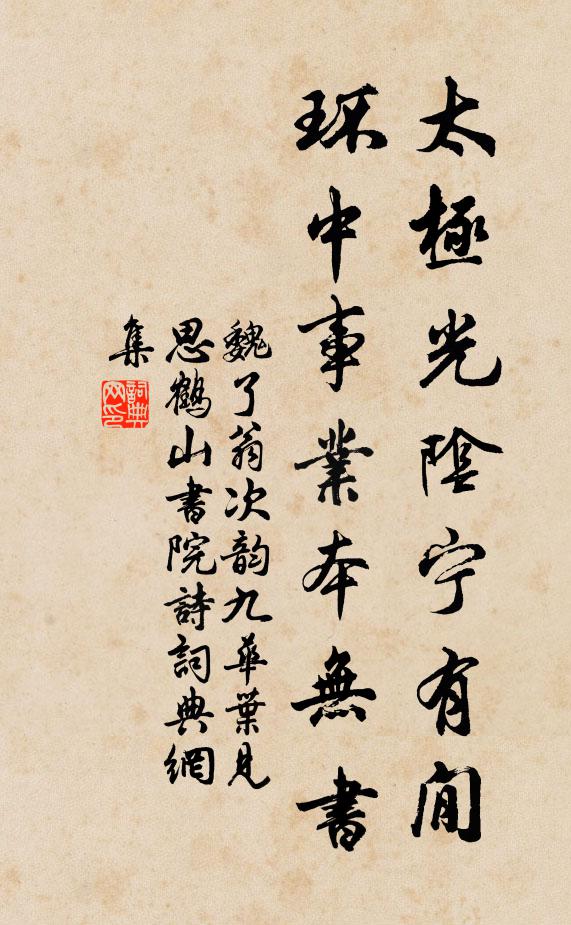 太極光陰宁有间
环中事業本無書
魏了翁次韵九華葉見
思鶴山書院詩詞典網
集
詞典
网印